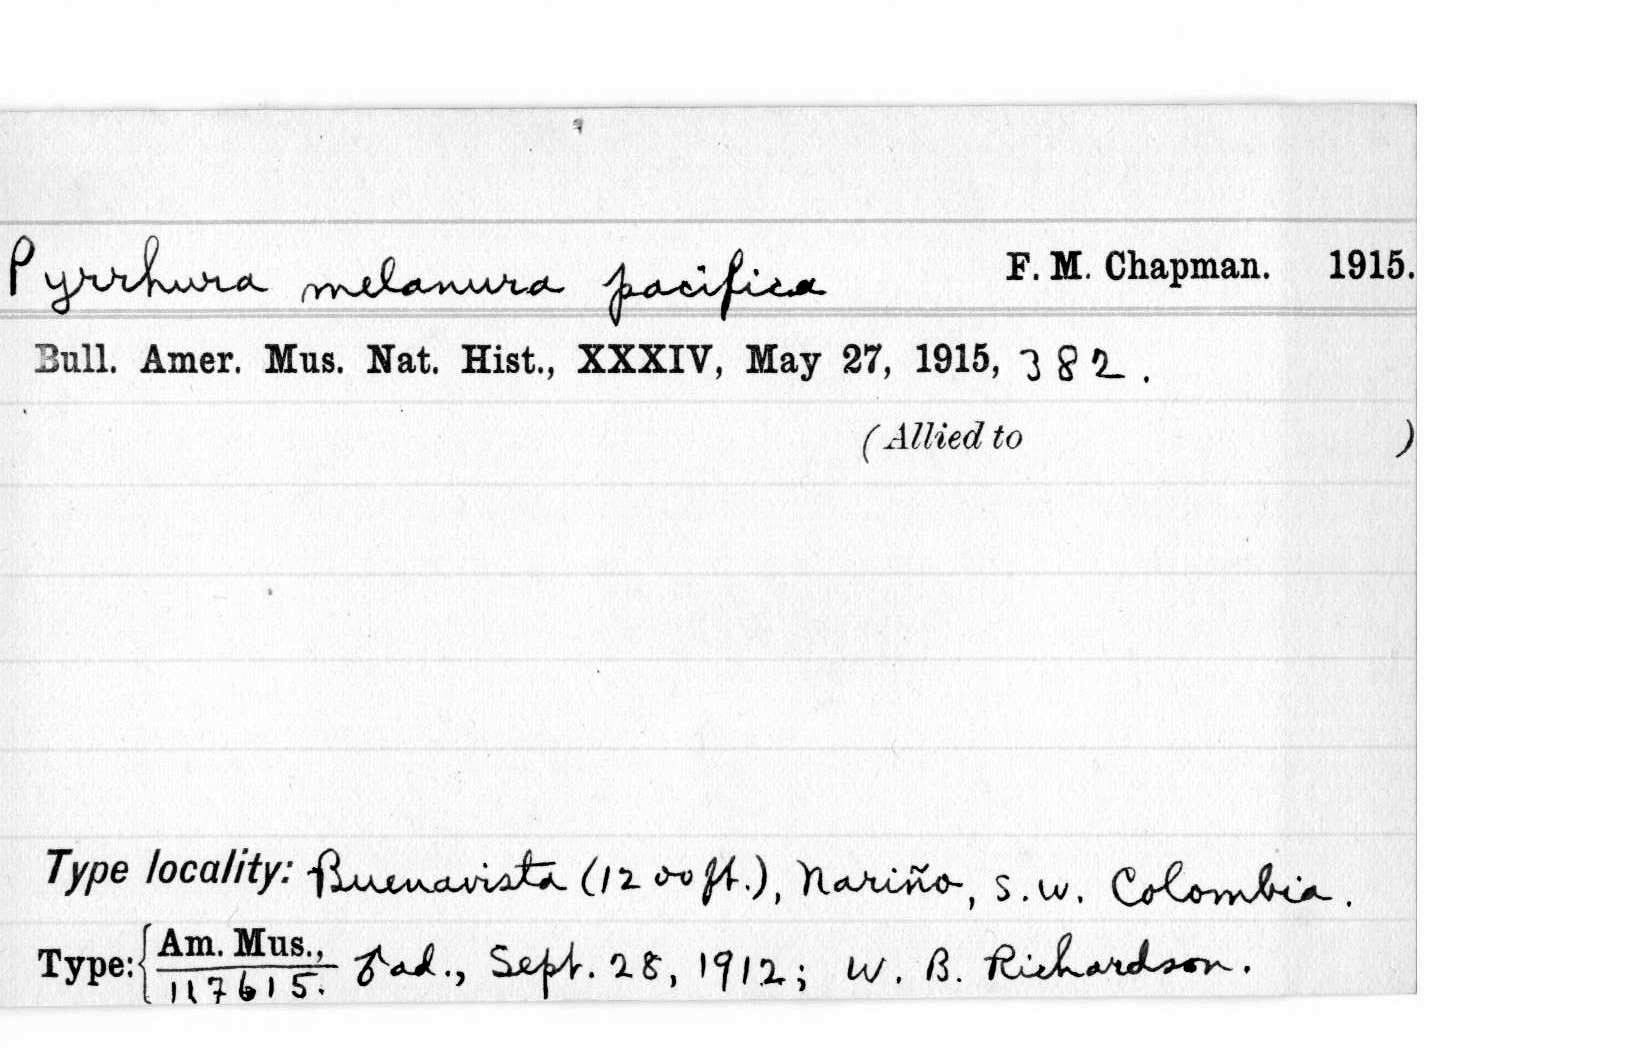 Pyrrhura melanura pacifica F. M. Chapman. 1915.
Bull. Amer. Mus. Nat. Hist., XXXIV, May 27, 1915, 382.
(Allied to )
Type locality: Buenavista (1200 ft.), Nariño, S.W. Colombia.
Type: { Am. Mus., ♂ ad., Sept. 28, 1912; W. B. Richardson.
117615.